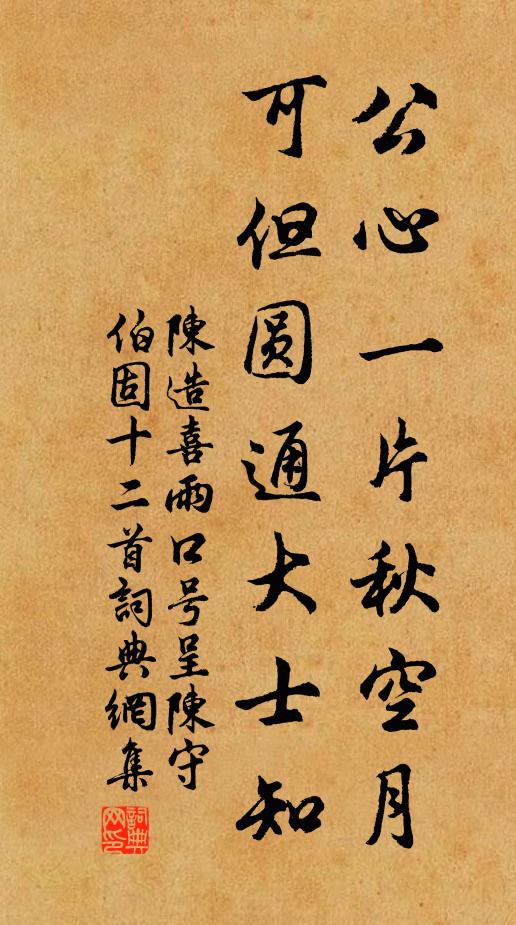 公心一片秋空月
可但圓通大士知
陳造喜雨口号呈陳守
伯固十二首詞典網集
詞典网印